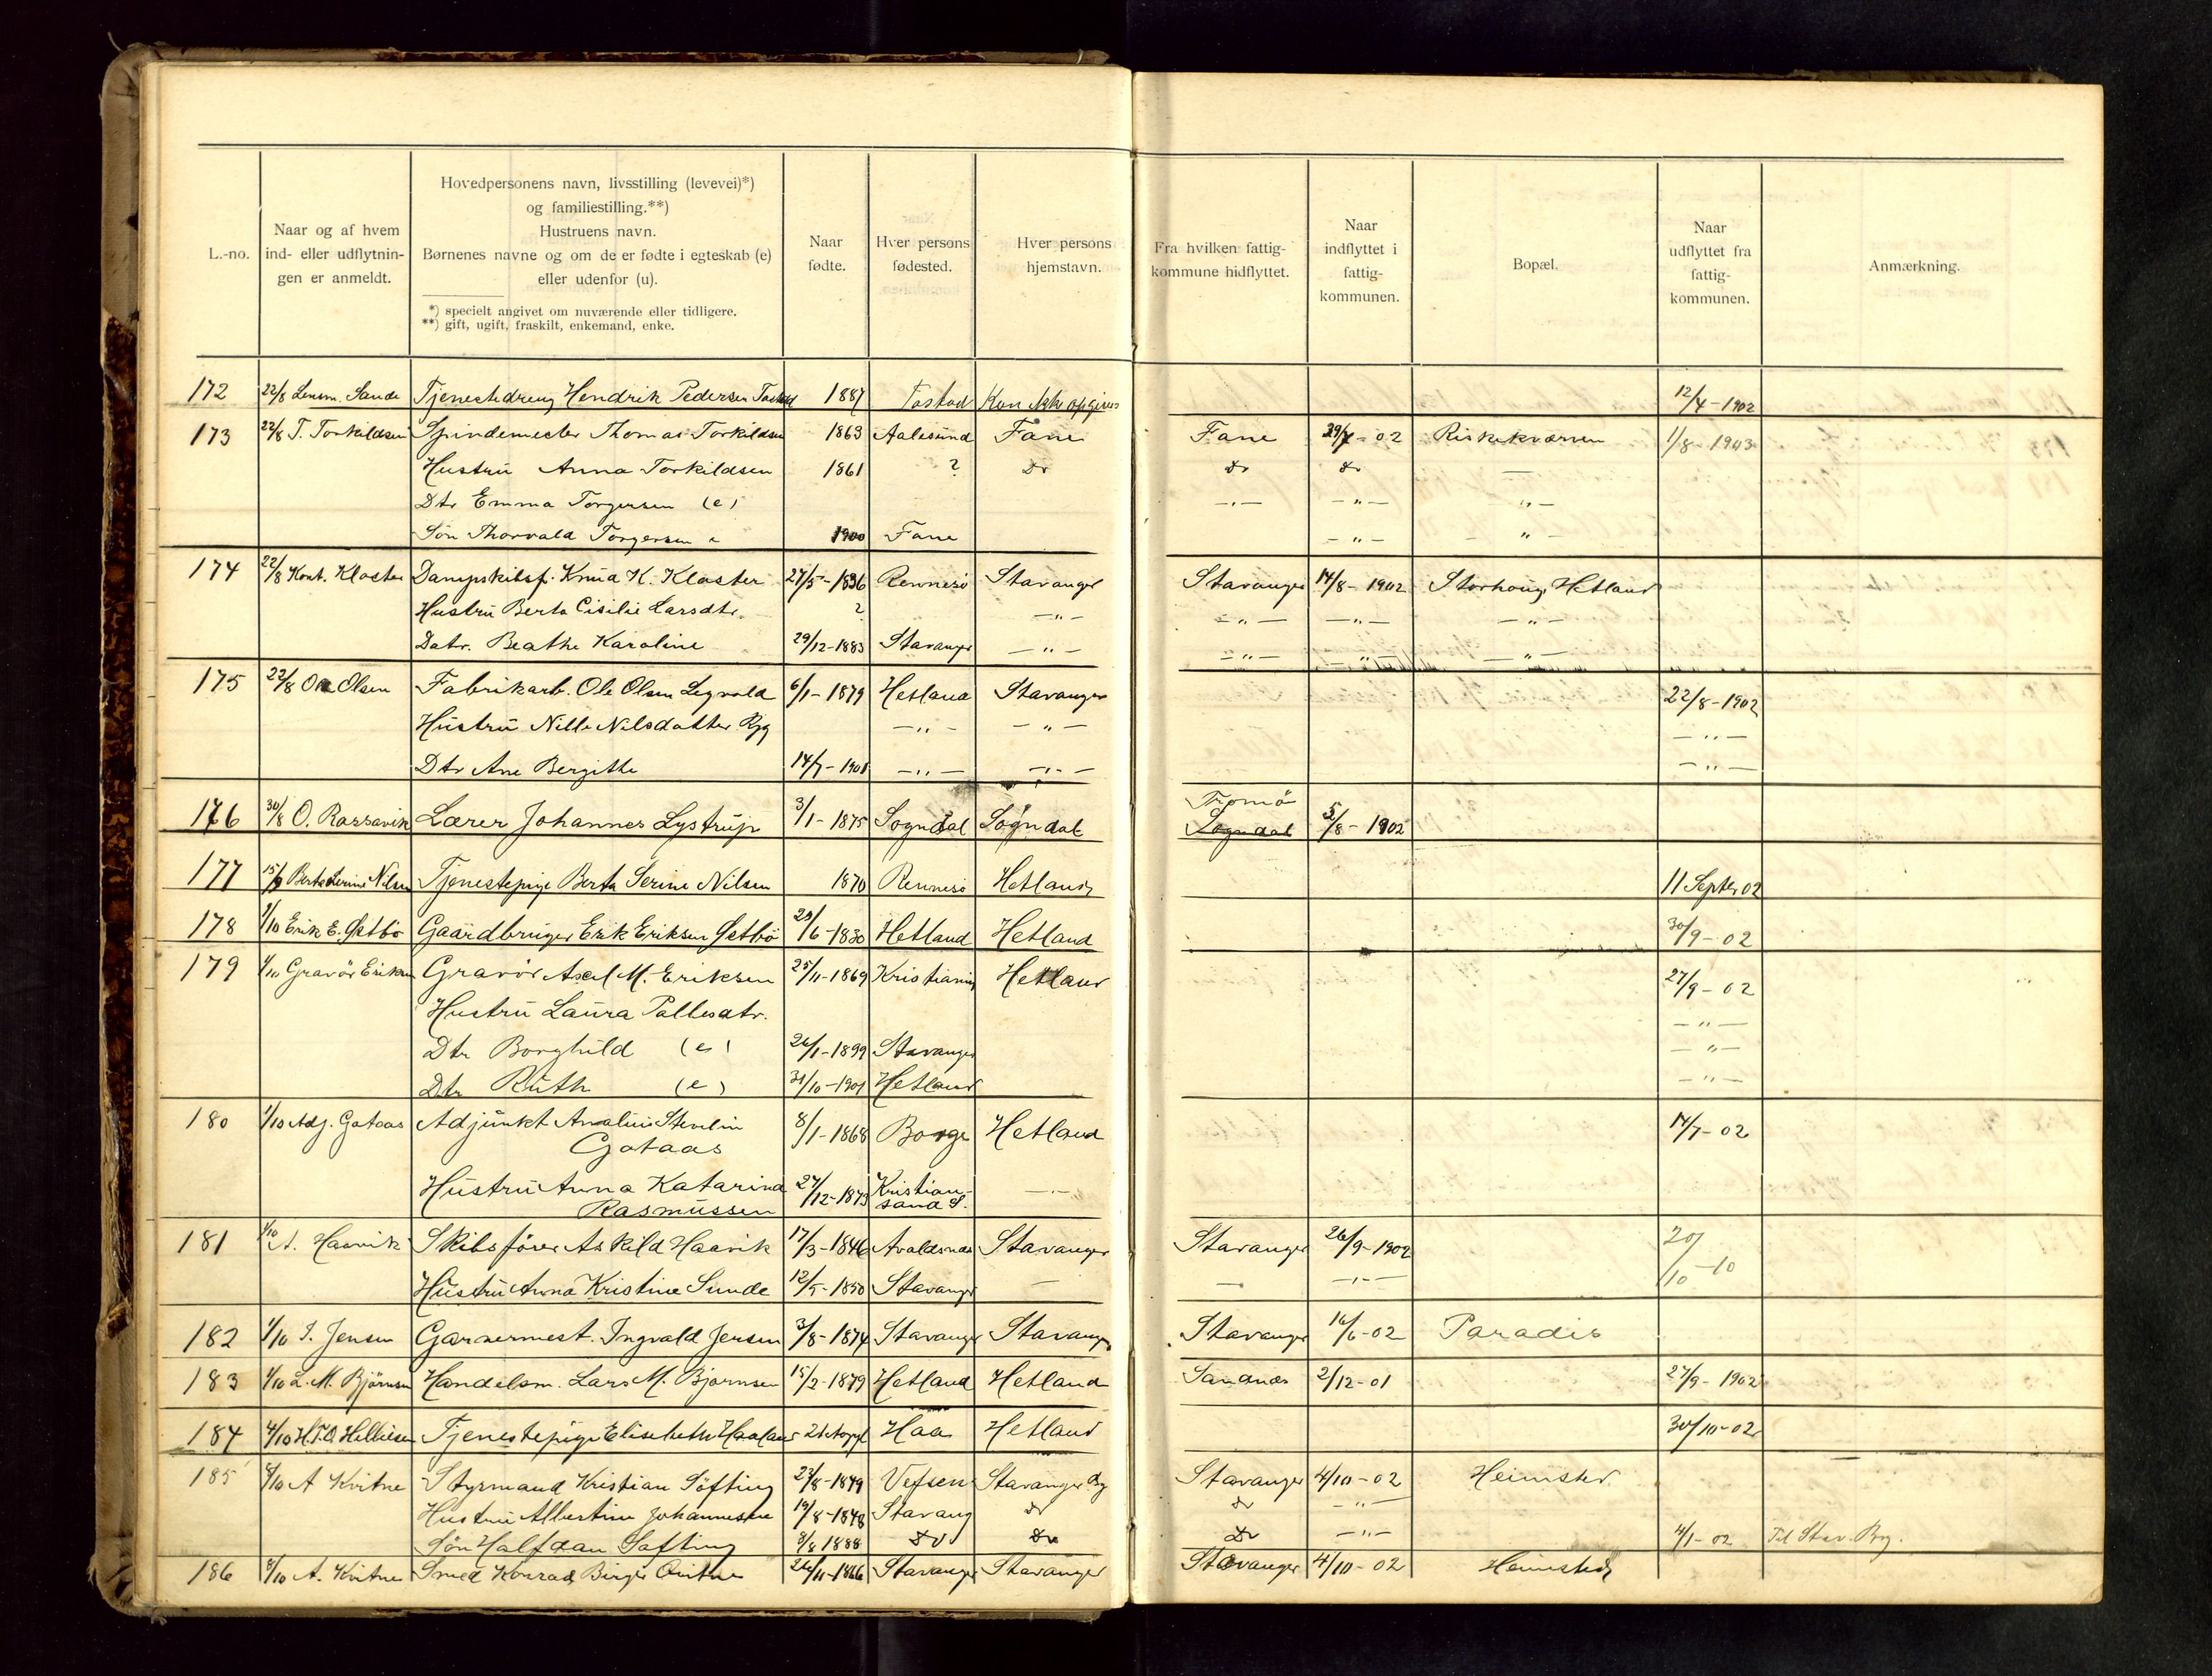 L.-no.
Naar og af hvem
ind- eller udflytnin-
gen er anmeldt.
Hovedpersonens navn, livsstilling (levevei)*)
og familiestilling.**)
Hustruens navn.
Børnenes navne og om de er fødte i egteskab (e)
eller udenfor (u).
*) specielt angivet om nuværende eller tidligere.
**) gift, ugift, fraskilt, enkemand, enke.
Naar
fødte.
Hver persons
fødested.
Hver persons
hjemstavn.
Fra hvilken fattig-
kommune hidflyttet.
Naar
indflyttet i
fattig-
kommunen.
Bopæl.
Naar
udflyttet fra
fattig-
kommunen.
Anmærkning.
172 22/8 Lensm. Sande Tjenestedreng Hendrik Pedersen 1887 Tastad Kan ikke opgives 12/4-1902
173 22/8 T. Torkildsen Spindemester Thomas Torkildsen 1863 Aalesund Fane Fane 29/7-02 Riskekværnen 1/8-1903
Hustru Anna Torkildsen 1861 ? Do Do Do —
Dtr Emma Torgersen (e) —"— —"— —"—
Søn Thorvald Torgersen e 1900 Fane —"— —"—
174 22/8 Kont. Kloster Dampskibsf. Knud K. Kloster 27/5-1836 Rennesø Stavanger Stavanger 14/8-1902 Storhoug, Hetland
Hustru Berta Cisilie Larsdtr. ? —"— —"— —"— —"—
Datr. Beathe Karoline 29/12-1883 Stavanger —"— —"— —"— —"—
175 22/8 Ole Olsen Fabrikarb. Ole Olsen Legvold 6/1-1879 Hetland Stavanger 22/8-1902
Hustru Nille Nilsdatter Ryg —"— —"— —"—
Dtr Ane Bergithe 14/7-1901 —"— —"— —"—
Tromö
176 30/8 O. Rossavik Lærer Johannes Lystrup 3/1-1875 Sogndal Sogndal Sogndal 5/8-1902
177 15/9 Berta Serine Nilsen Tjenestepige Berta Serine Nilsen 1870 Rennesø Hetland 11 Septbr 02
178 1/10 Erik E. Østbö Gaardbruger Erik Eriksen Østbö 29/6-1830 Hetland Hetland 30/9-02
179 1/10 Gravör Eriksen Gravör Axel M. Eriksen 25/11-1869 Kristiania Hetland 27/9-02
Hustru Laura Pallesdtr. —"—
Dtr Borghild (e) 26/1-1899 Stavanger —"—
Dtr Ruth (e) 31/10-1901 Hetland —"—
180 1/10 Adj. Gataas Adjunkt Amalius Stenelin 8/1-1868 Borge Hetland 14/7-02
Gataas
Hustru Anna Katarina 27/12-1873 Kristian- —"—
Rasmussen sand S.
181 1/10 A. Haavik Skibsfører Askild Haavik 17/3-1846 Avaldsnæs Stavanger Stavanger 26/9-1902 20/10-10
Hustru Anna Kristine Sunde 12/5-1850 Stavanger — — —"—
182 1/10 I. Jensen Garvermest. Ingvald Jensen 3/8-1874 Stavanger Stavanger Stavanger 16/6-02 Paradis
183 1/10 L. M. Björnsen Handelsm. Lars M. Bjørnsen 15/2-1879 Hetland Hetland Sandnæs 2/12-01 27/9-1902
184 4/10 Tjenestepige Elisebeth Haaland Haa Hetland 30/10-02
185 8/10 A Kvitne Styrmand Kristian Söfting 23/8-1849 Vefsen Stavanger By Stavanger 4/10-02 Heimsted
Hustru Albertine Johannesen 19/8-1848 Stavang Do Do —"—
Søn Halfdan Søfting 8/8 1888 Do Do Do —"— 4/1-02 Til Stav. By.
186 8/10 A. Kvitne Smed Konrad Birger Qvitne 26/11-1866 Stavanger Stavanger Stavanger 4/10-02 Heimsted